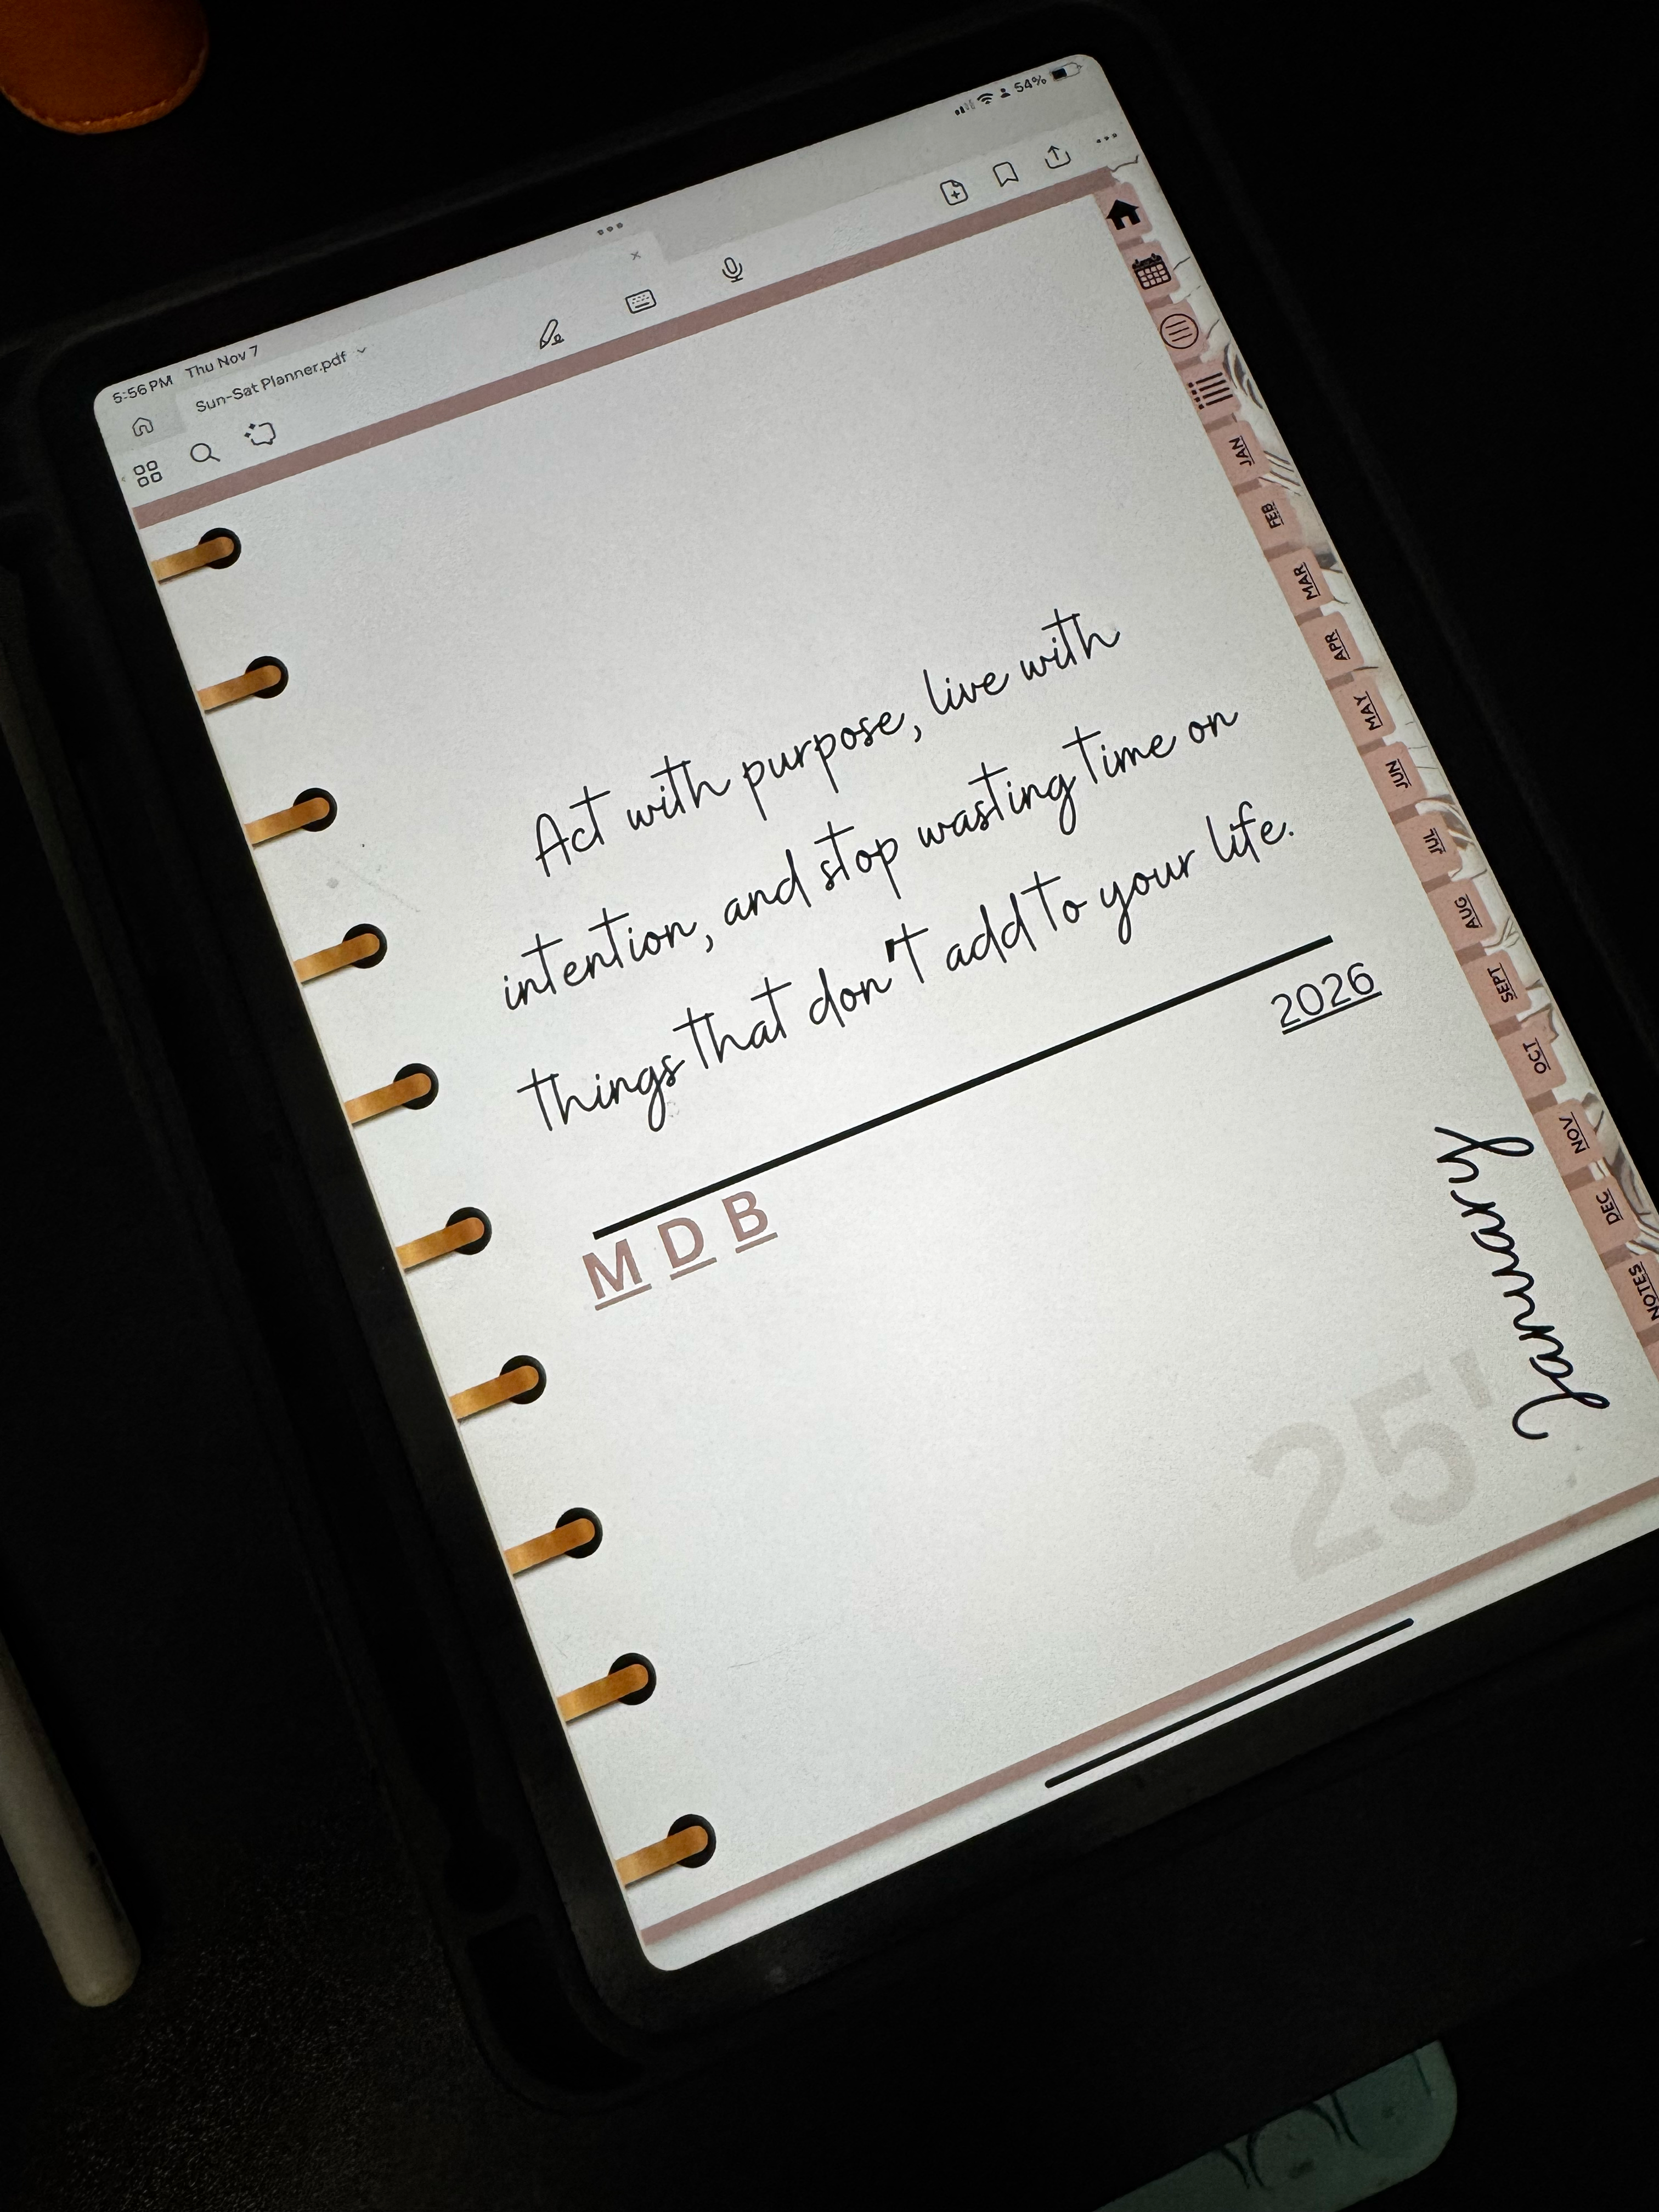 5:56 PM Thu Nov 7
54%
Sun-Sat Planner.pdf
Act with purpose, live with
intention, and stop wasting time on
things that don't add to your life.
M D B
2026
January
25'
JAN
FEB
MAR
APR
MAY
JUN
JUL
AUG
SEPT
OCT
NOV
DEC
NOTES